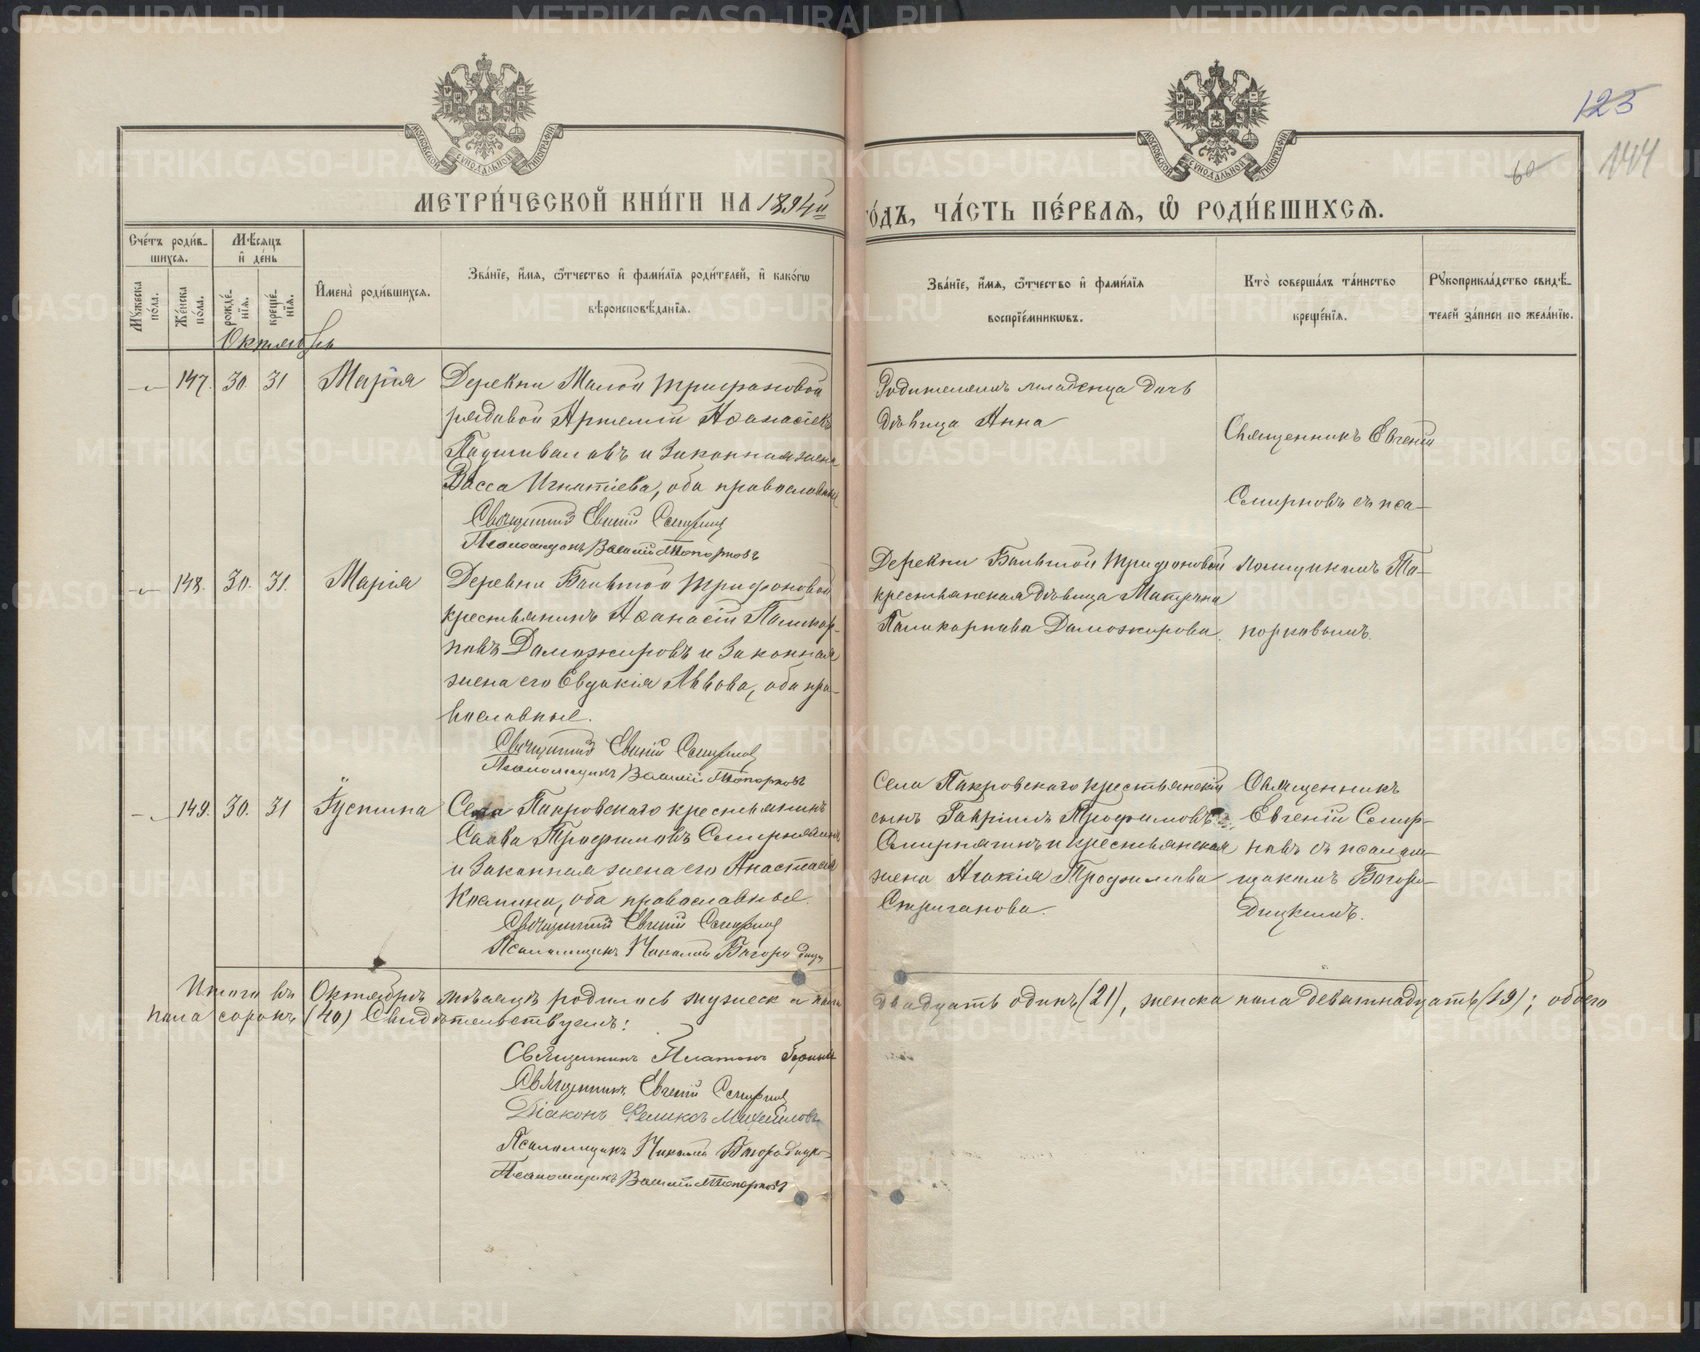 METRIKI.GASO-URAL.RU
123
144
60
МОСКОВСКОЙ СѴНОДАЛЬНОЙ ТИПОГРАФІИ
МОСКОВСКОЙ СѴНОДАЛЬНОЙ ТИПОГРАФІИ
МЕТРИ́ЧЕСКОЙ КНИ́ГИ НА 1894й
ГО́ДЪ, ЧА́СТЬ ПЕ́РВАЯ, Ѡ РОДИ́ВШИХСЯ.
Сче́тъ роди́в-
шихся.
Мѣ́сяцъ
и҆ день
Мꙋ́жеска по́ла.
Же́нска по́ла.
рожде́-
нїя.
креще́-
нїя.
И҆мена̀ роди́вшихся.
Зва́нїе, и҆́мя, ѻ҆́тчество и҆ фами́лїя роди́телей, и҆ како́гѡ
вѣроисповѣ́данїя.
Зва́нїе, и҆́мя, ѻ҆́тчество и҆ фами́лїя
воспрїе́мникѡвъ.
Кто̀ соверша́лъ та́инство
креще́нїя.
Рꙋкоприкла́дство свидѣ́-
телей за́писи по жела́нїю.
Октябрь
147. 30. 31 Марія Деревни Малой Трифоновой
рядовой Артемій Аѳанасіевъ
Падшиваловъ и законная жена
Васса Игнатіева, оба православные
Священникъ Евгеній Смирнов
Псаломщикъ Василій Топорковъ
Родителемъ младенца дочь
дѣвица Анна
Священникъ Евгеній
Смирновъ съ пса-
148. 30. 31. Марія Деревни Большой Трифоновой
крестьянинъ Аѳанасій Поликар-
повъ Доможировъ и законная
жена его Евдокія Львова, оба пра-
вославные.
Священникъ Евгеній Смирнов
Псаломщикъ Василій Топорковъ
Деревни Большой Трифоновой
крестьянская дѣвица Матрена
Поликарпова Доможирова.
ломщикомъ То-
порковымъ.
149. 30. 31 Іустина Села Покровскаго крестьянинъ
Савва Трофимовъ Смирнягинъ
и законная жена его Анастасія
Козмина, оба православные.
Священникъ Евгеній Смирнов
Псаломщикъ Николай Богородицк
Села Покровскаго крестьянскій
сынъ Гавріилъ Трофимовъ
Смирнягинъ и крестьянская
жена Агапія Трофимова
Стриганова.
Священникъ
Евгеній Смир-
новъ съ псалом-
щикомъ Богоро-
дицкимъ.
Итого въ Октябрѣ мѣсяцѣ родилось мужеска пола двадцать одинъ (21), женска пола девятнадцать (19); обоего
пола сорокъ (40) Свидѣтельствуемъ:
Священникъ Платонъ
Священникъ Евгеній Смирнов
Діаконъ Феликсъ Михайловъ
Псаломщикъ Николай Богородицк
Псаломщикъ Василій Топорковъ